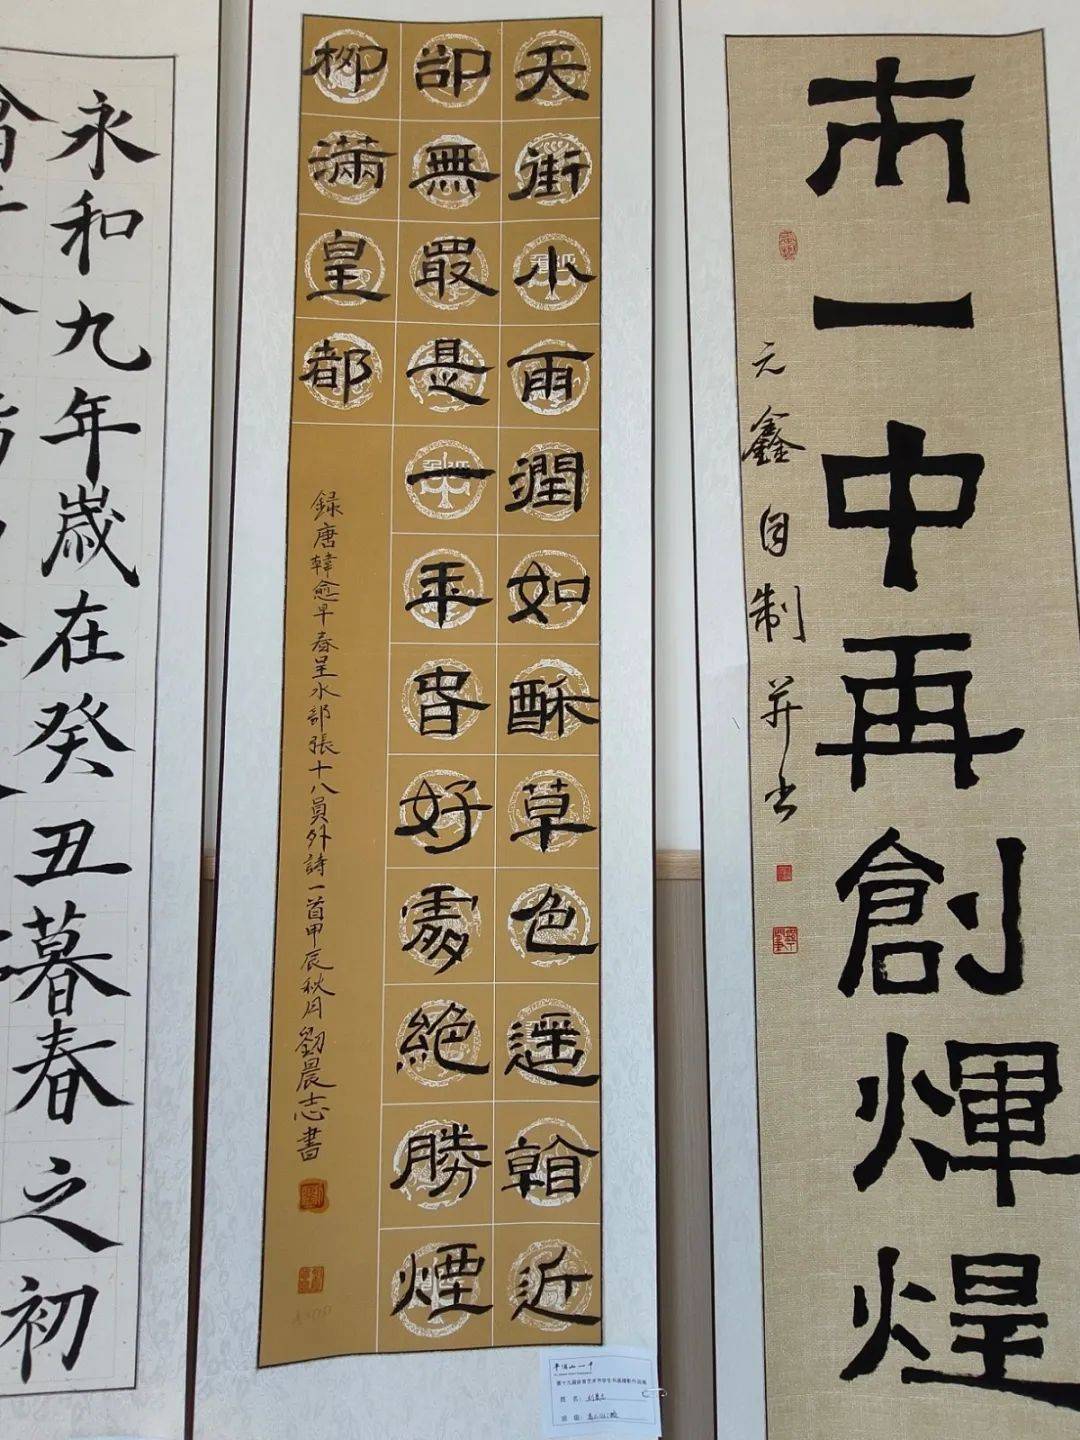 市一中再創煇煌
元鑫自制并书
天街小雨潤如酥草色遥看近
卻無最是一年春好處絕勝煙
柳滿皇都
録唐韓愈早春呈水部張十八員外詩一首甲辰秋月劉晨志書
永和九年歲在癸丑暮春之初
平顶山一中
姓名:
班级: